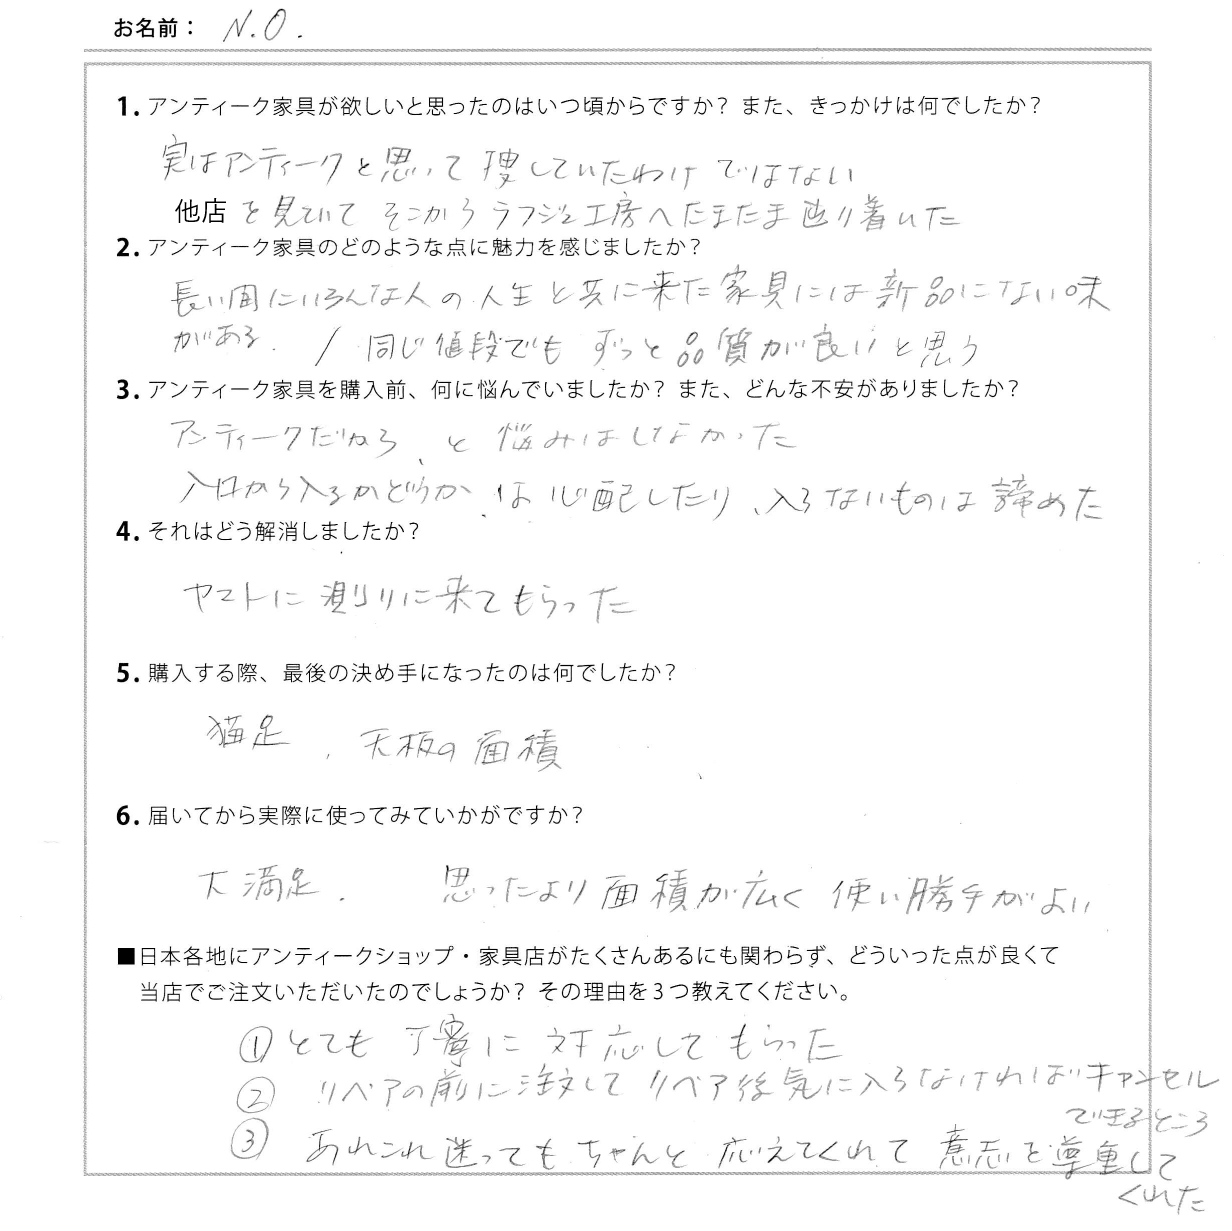 お名前： N.O.
1. アンティーク家具が欲しいと思ったのはいつ頃からですか？ また、きっかけは何でしたか？
実はアンティークと思って捜していたわけではない
他店を見ていてそこからラフジュ工房へたまたま辿り着いた
2. アンティーク家具のどのような点に魅力を感じましたか？
長い間にいろんな人の人生と共に来た家具には新品にない味
がある. / 同じ値段でもずっと品質が良いと思う
3. アンティーク家具を購入前、何に悩んでいましたか？ また、どんな不安がありましたか？
アンティークだから、と悩みはしなかった
入口から入るかどうか、は心配したり、入らないものは諦めた
4. それはどう解消しましたか？
ヤマトに測りに来てもらった
5. 購入する際、最後の決め手になったのは何でしたか？
猫足、天板の面積
6. 届いてから実際に使ってみていかがですか？
大満足. 思ったより面積が広く使い勝手がよい
■日本各地にアンティークショップ・家具店がたくさんあるにも関わらず、どういった点が良くて
当店でご注文いただいたのでしょうか？ その理由を３つ教えてください。
①とても丁寧に対応してもらった
② リペアの前に注文してリペア後気に入らなければキャンセル
できるところ
③ あれこれ迷ってもちゃんと応えてくれて意志を尊重して
くれた